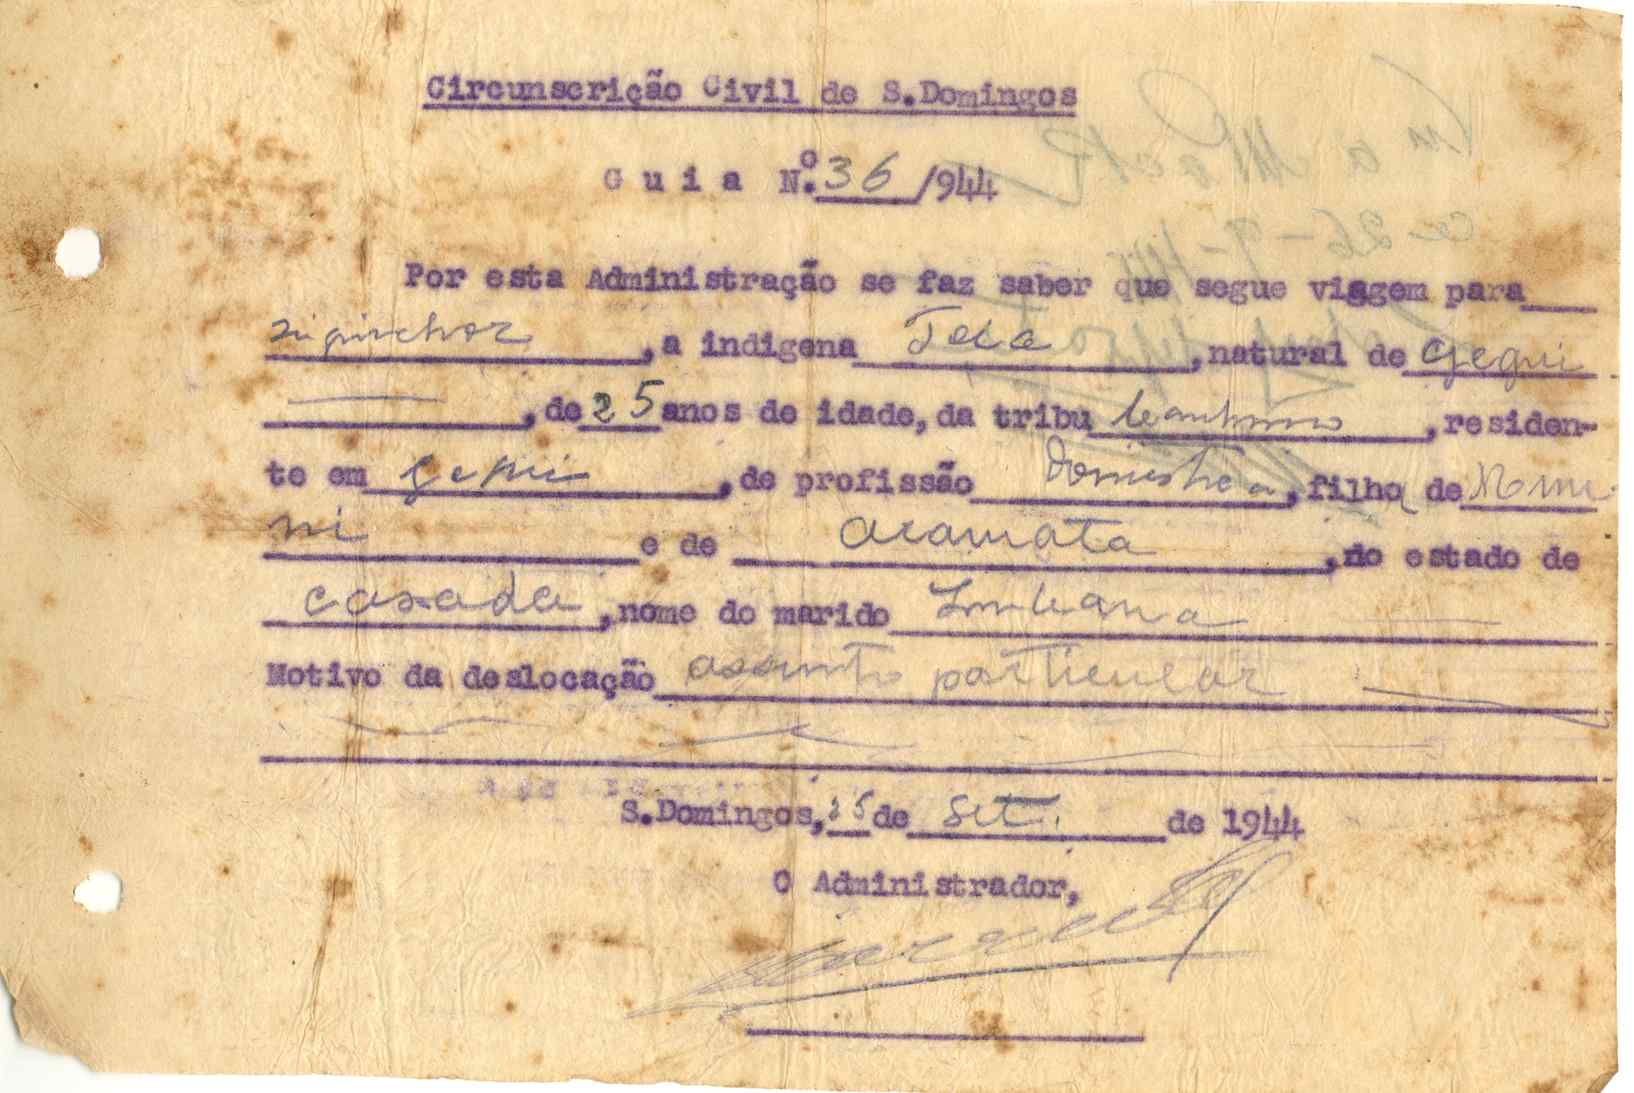 Circunscrição Civil de S.Domingos
Guia N.º 36/944
Por esta Administração se faz saber que segue viagem para
Ziguinchor, a indigena, natural de Gegui
, de 25 anos de idade, da tribu, residen-
te em, de profissão Domestica, filha de
ni e de Aramata, no estado de
casada, nome do marido
Motivo da deslocação assunto particular
S.Domingos, 25 de Set. de 1944
O Administrador,